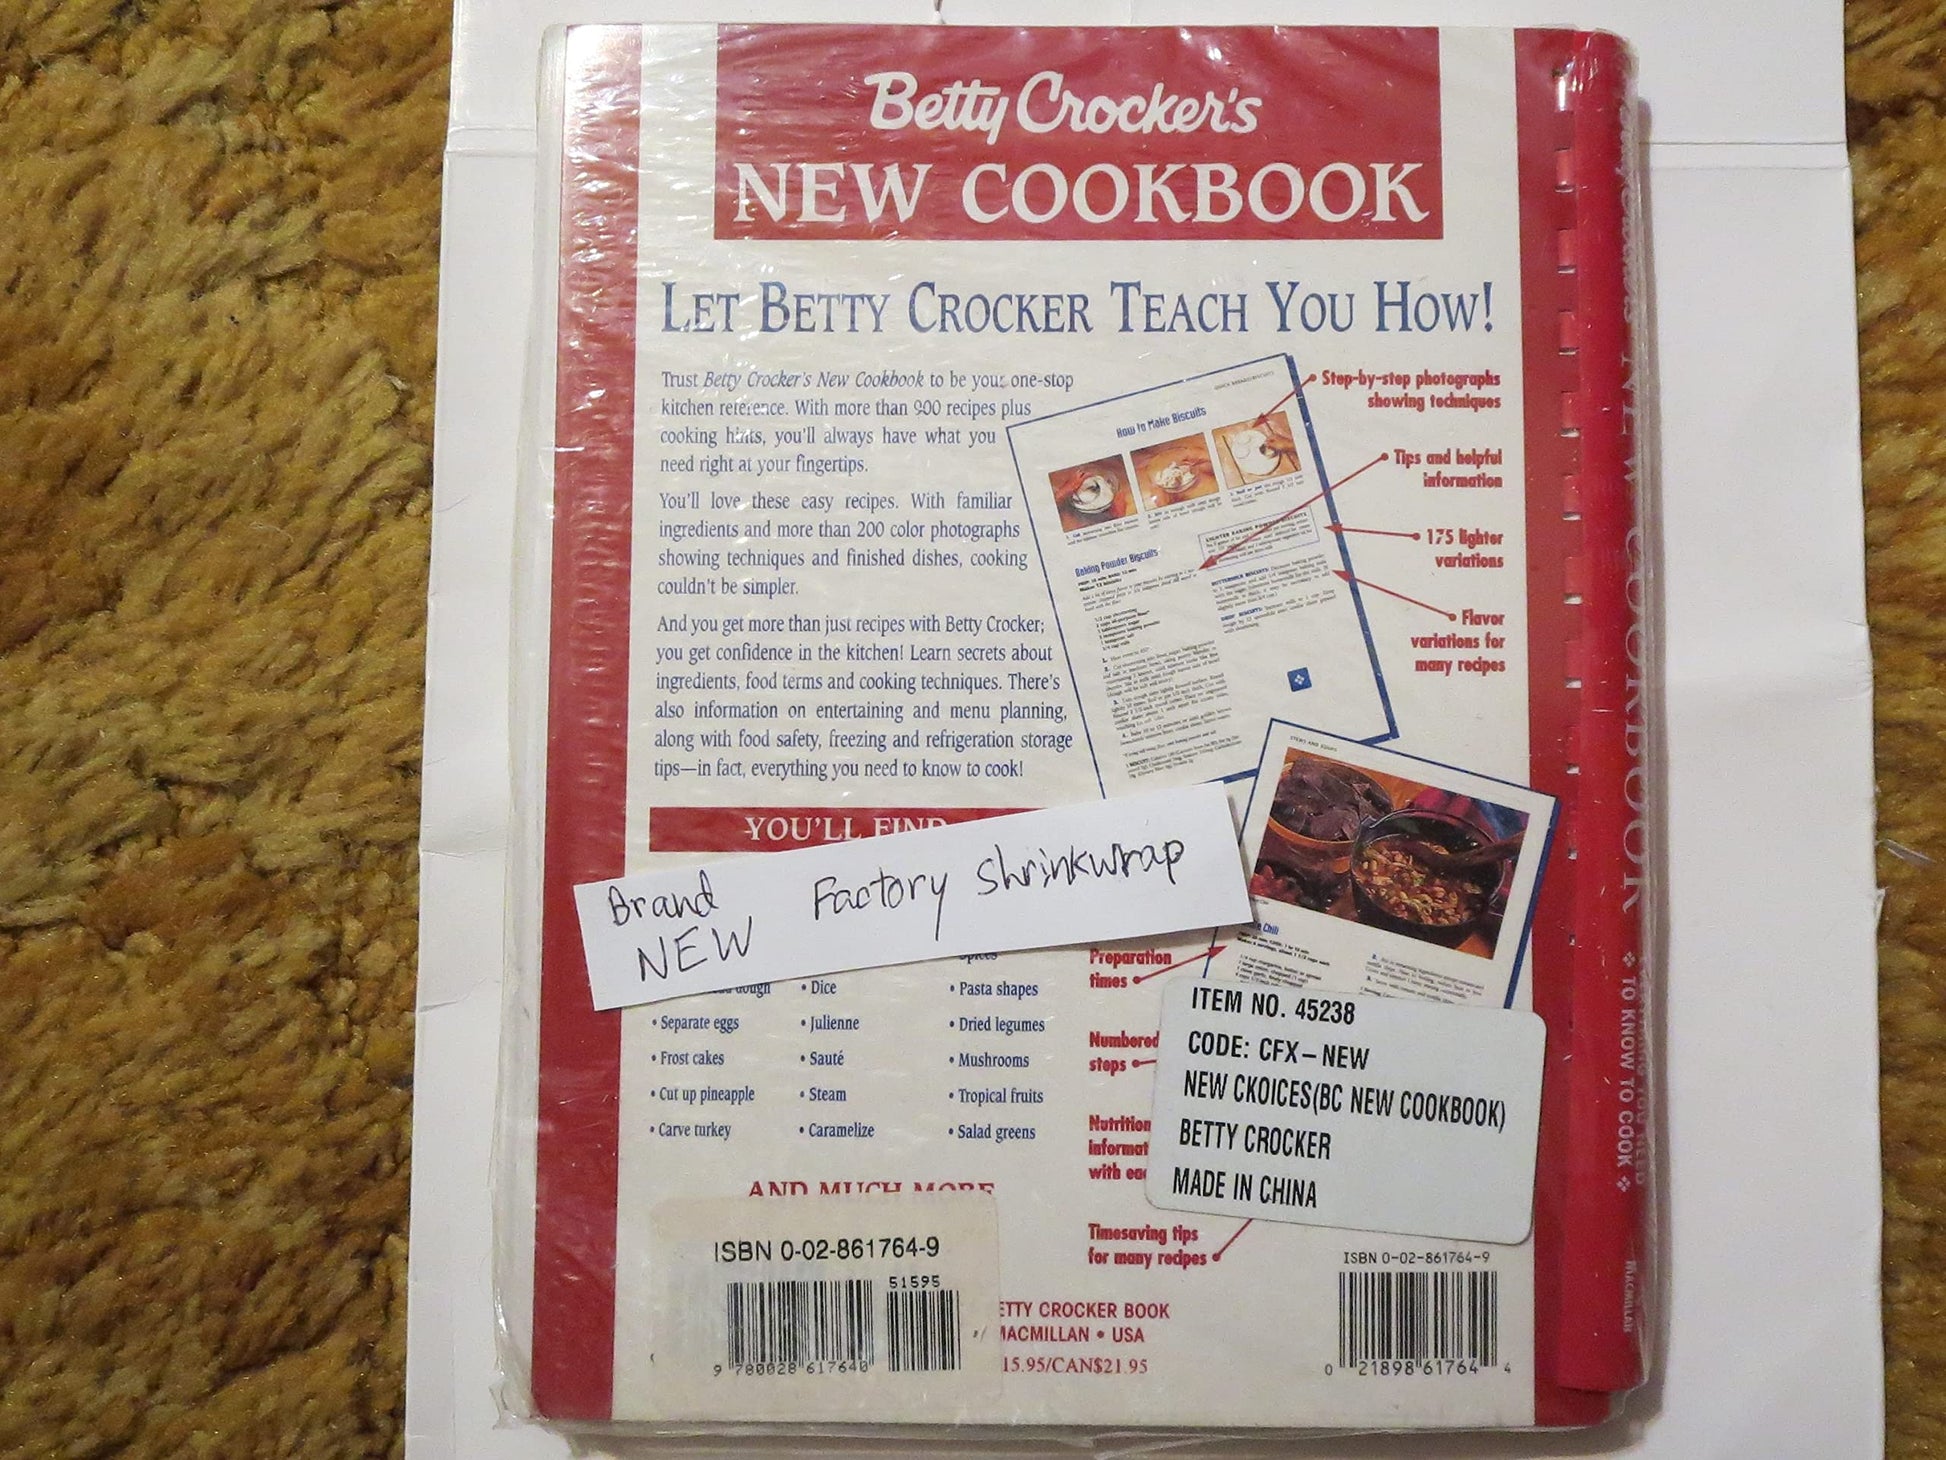 Betty Crocker's
NEW COOKBOOK
LET BETTY CROCKER TEACH YOU HOW!
Trust Betty Crocker's New Cookbook to be your one-stop
kitchen reference. With more than 900 recipes plus
cooking hints, you'll always have what you
need right at your fingertips.
You'll love these easy recipes. With familiar
ingredients and more than 200 color photographs
showing techniques and finished dishes, cooking
couldn't be simpler.
And you get more than just recipes with Betty Crocker;
you get confidence in the kitchen! Learn secrets about
ingredients, food terms and cooking techniques. There's
also information on entertaining and menu planning,
along with food safety, freezing and refrigeration storage
tips—in fact, everything you need to know to cook!
How to Make Biscuits
Baking Powder Biscuits
Step-by-step photographs
showing techniques
Tips and helpful
information
175 lighter
variations
Flavor
variations for
many recipes
YOU'LL FIND
Brand
NEW
Factory shrinkwrap
dough
• Separate eggs
• Frost cakes
• Cut up pineapple
• Carve turkey
• Dice
• Julienne
• Sauté
• Steam
• Caramelize
Spices
• Pasta shapes
• Dried legumes
• Mushrooms
• Tropical fruits
• Salad greens
AND MUCH MORE
STEWS AND SOUPS
Chili
Preparation
times
Numbered
steps
Nutrition
informat
with eac
Timesaving tips
for many recipes
ITEM NO. 45238
CODE: CFX–NEW
NEW CKOICES(BC NEW COOKBOOK)
BETTY CROCKER
MADE IN CHINA
ISBN 0-02-861764-9
51595
9 780028 617640
ETTY CROCKER BOOK
MACMILLAN • USA
15.95/CAN$21.95
ISBN 0-02-861764-9
0 21898 61764 4
NEW COOKBOOK
TO KNOW TO COOK
MACMILLAN